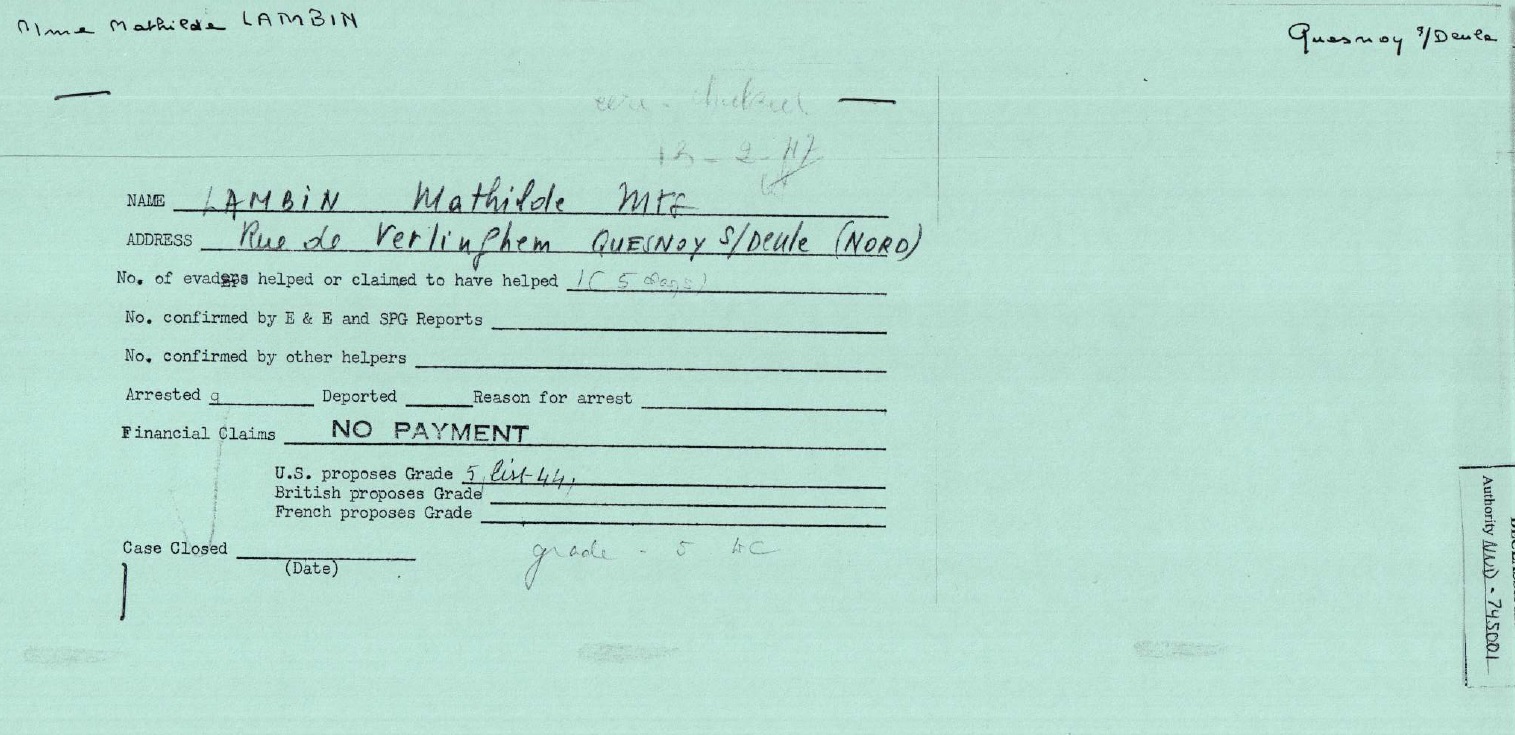 Mme Mathilde LAMBIN
Quesnoy s/Deule
12-2-47
NAME LAMBIN Mathilde Mrs
ADDRESS Rue de Verlinghem QUESNOY S/Deule (NORD)
No. of evaders helped or claimed to have helped 1 (5 days)
No. confirmed by E & E and SPG Reports
No. confirmed by other helpers
Arrested Deported Reason for arrest
Financial Claims NO PAYMENT
U.S. proposes Grade 5, list-44,
British proposes Grade
French proposes Grade
Case Closed
grade - 5
(Date)
Authority NND-745001